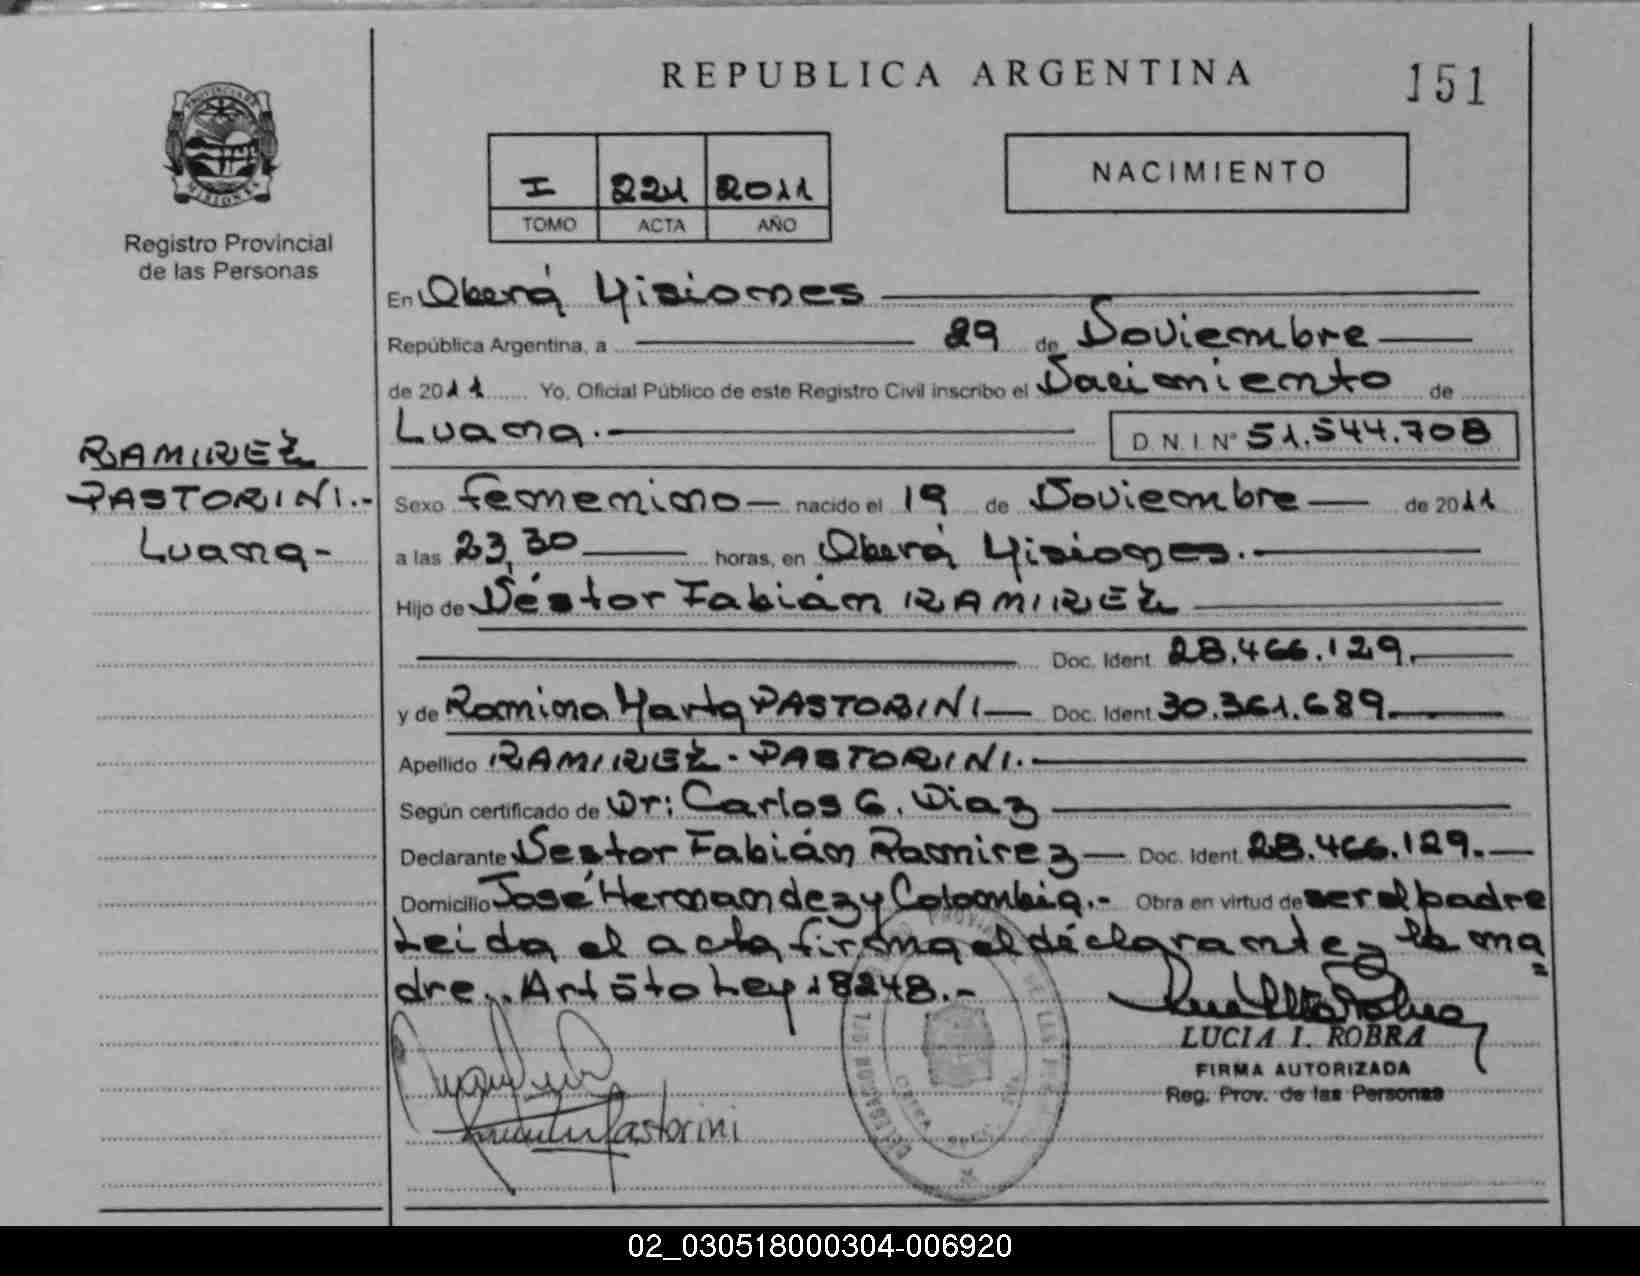 REPUBLICA ARGENTINA
151
PROVINCIA DE
MISIONES
Registro Provincial
de las Personas
I 221 2011
TOMO ACTA AÑO
NACIMIENTO
En Oberá Misiones
República Argentina, a 29 de Noviembre
de 2011 Yo, Oficial Público de este Registro Civil inscribo el Nacimiento de
Luana.- D. N. I. N° 51.544.708
RAMIREZ
PASTORINI.-
Luana-
Sexo femenino nacido el 19 de Noviembre de 2011
a las 23,30 horas, en Oberá Misiones.-
Hijo de Néstor Fabián RAMIREZ
Doc. Ident. 28.466.129.
y de Romina Marta PASTORINI Doc. Ident. 30.361.689.
Apellido RAMIREZ - PASTORINI.-
Según certificado de Dr: Carlos G. Diaz
Declarante Nestor Fabián Ramirez Doc. Ident. 28.466.129.
Domicilio José Hernandez y Colombia.- Obra en virtud de ser el padre
Leida el acta firma el declarante y la ma
dre. Art 5to Ley 18248.-
LUCIA I. ROBRA
FIRMA AUTORIZADA
Reg. Prov. de las Personas
Pastorini
02_030518000304-006920